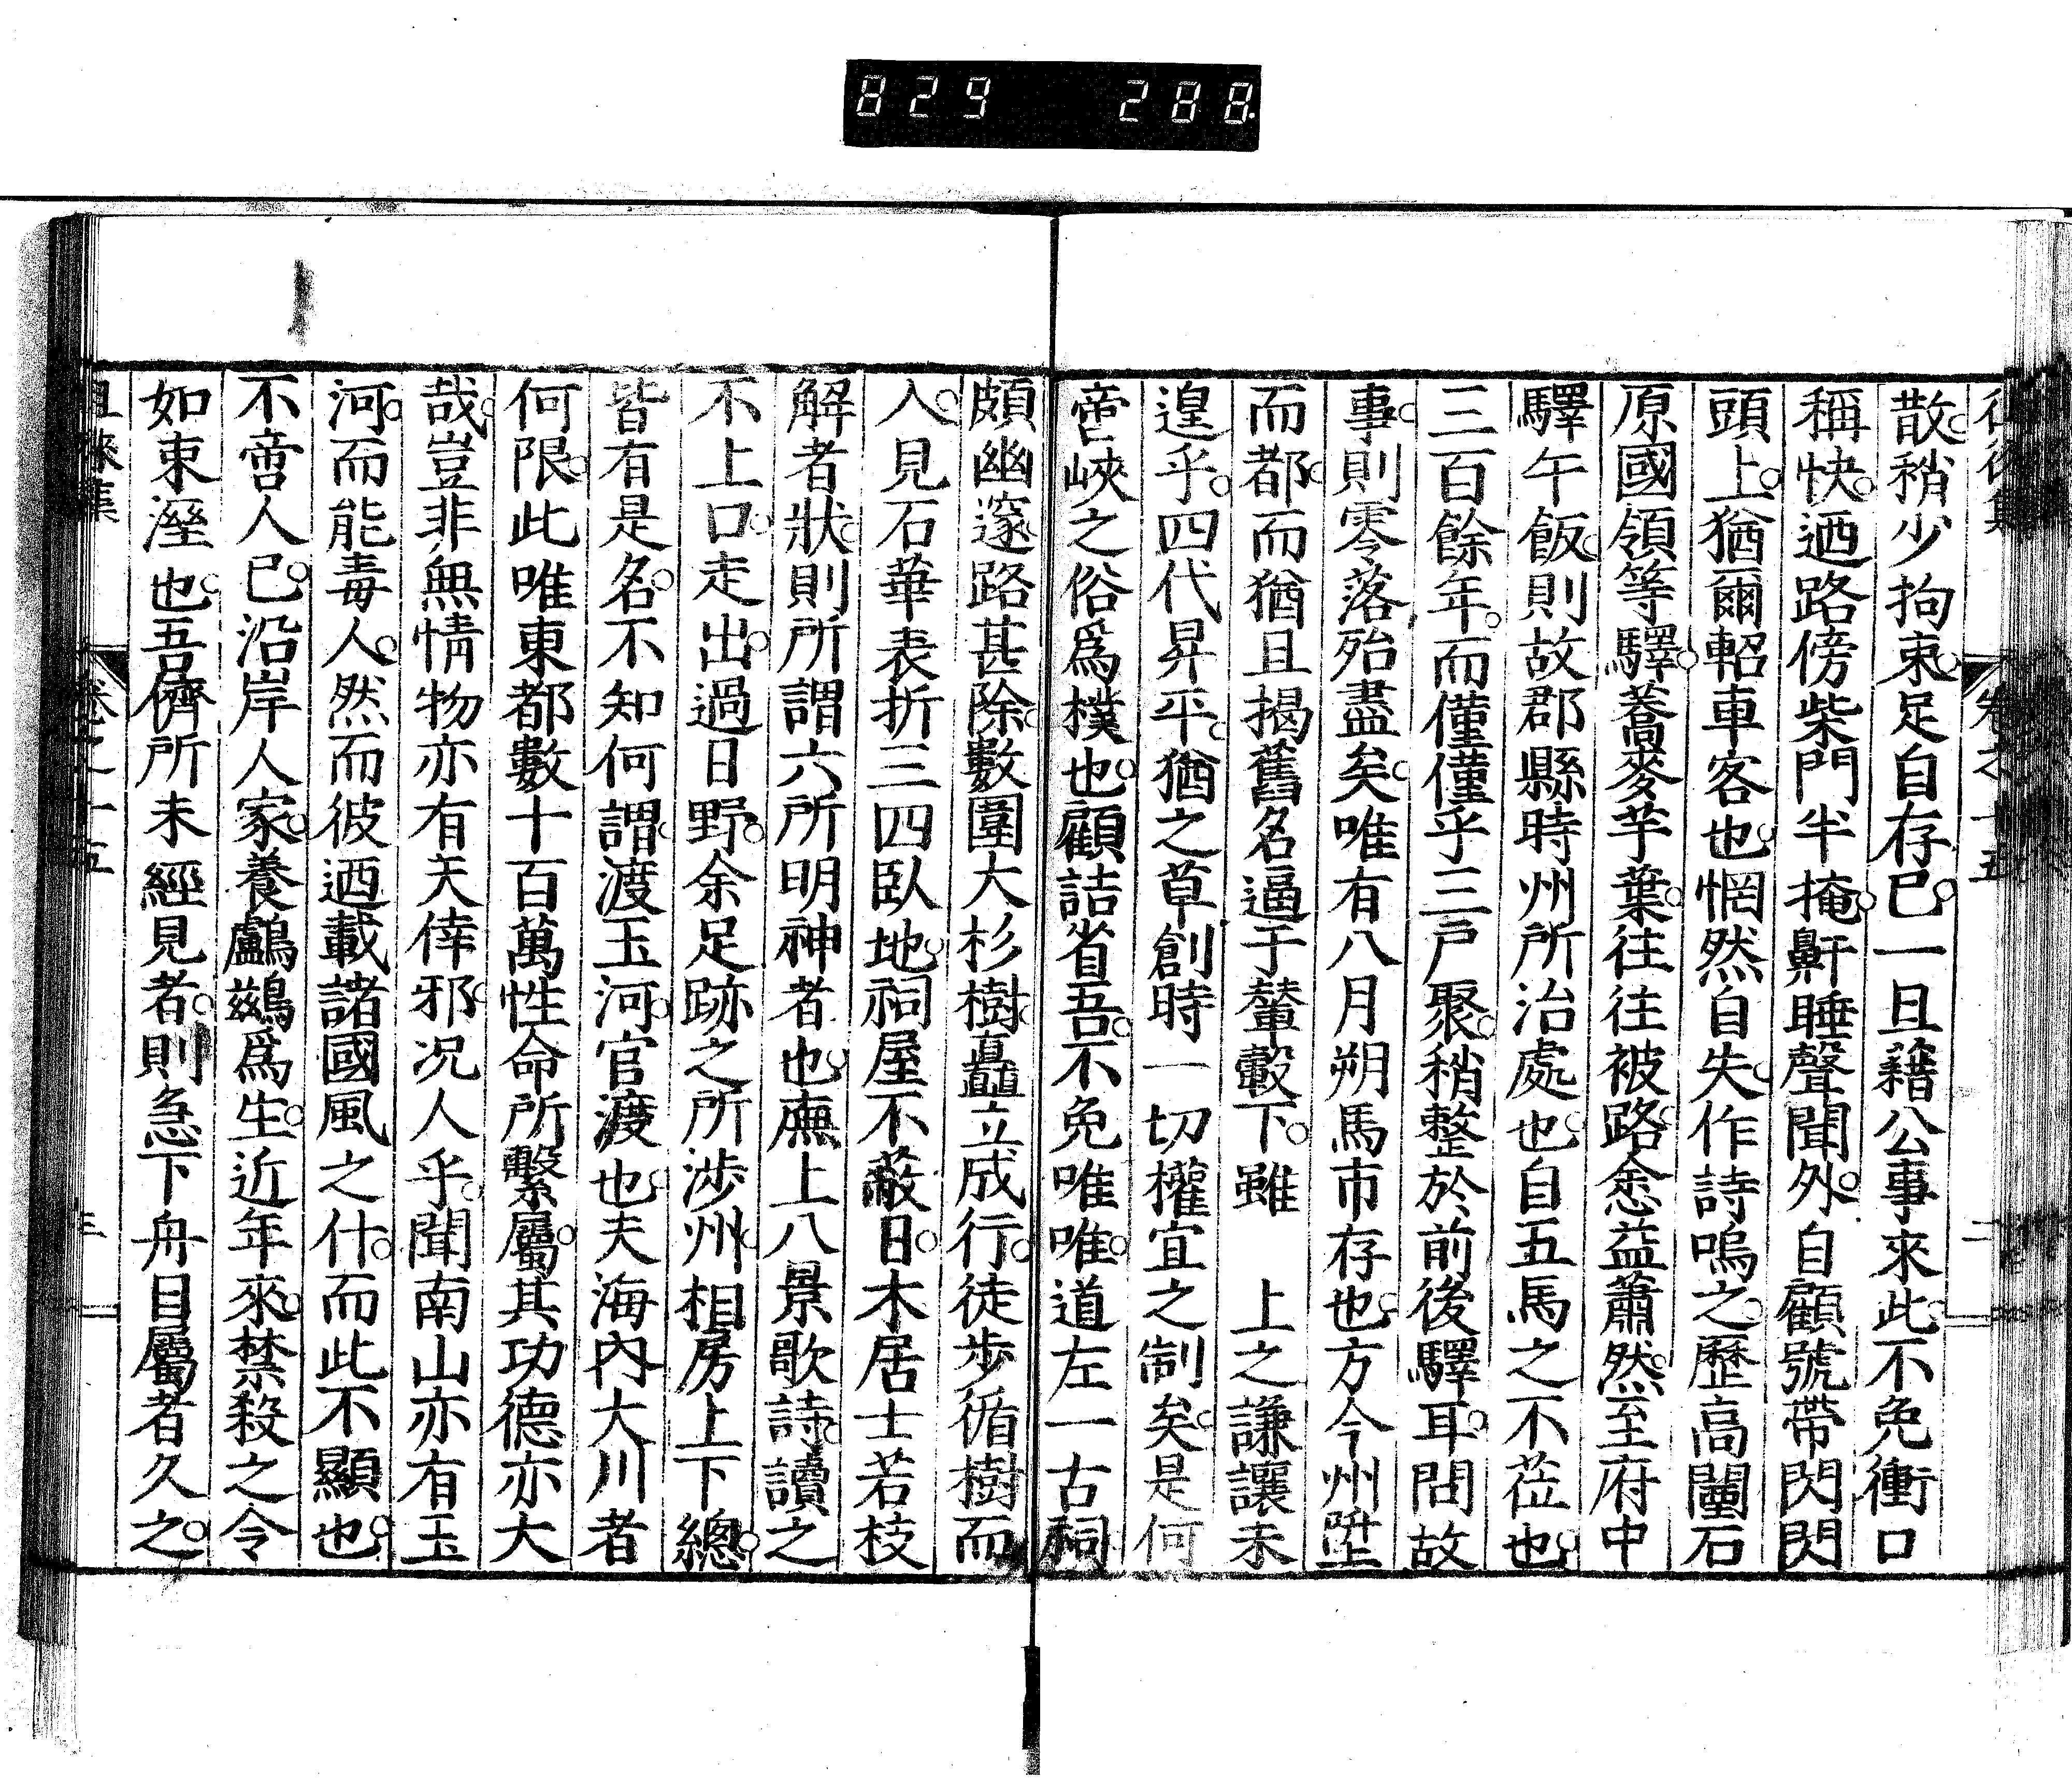 829 288
散稍少拘束足自存已一旦藉公事來此不免衝口
稱快迺路傍柴門半掩鼾睡聲聞外自顧號帶閃閃
頭上猶爾軺車客也惘然自失作詩嗚之歷高闉石
原國領等驛蕎麥芋葉往往被路悆益蕭然至府中
驛午飯則故郡縣時州所治處也自五馬之不莅也
三百餘年而僅僅乎三戸聚稍整於前後驛耳問故
事則零落殆盡矣唯有八月朔馬市存也方今州陞
而都而猶且揭舊名逼于輦轂下雖 上之謙讓未
遑乎四代昇平猶之草創時一切權宜之制矣是何
啻峽之俗爲樸也顧詰省吾不免唯唯道左一古祠
頗幽邃路甚除數圍大杉樹矗立成行徒步循樹而
入見石華表折三四臥地祠屋不蔽日木居士若枝
解者狀則所謂六所明神者也廡上八景歌詩讀之
不上口走出過日野余足跡之所涉州相房上下總
皆有是名不知何謂渡玉河官渡也夫海內大川者
何限此唯東都數十百萬性命所繫屬其功德亦大
哉豈非無情物亦有天倖邪况人乎聞南山亦有玉
河而能毒人然而彼迺載諸國風之什而此不顯也
不啻人已沿岸人家養鸕鷀爲生近年來禁殺之令
如束溼也吾儕所未經見者則急下舟目屬者久之
徠集 卷之十五 三